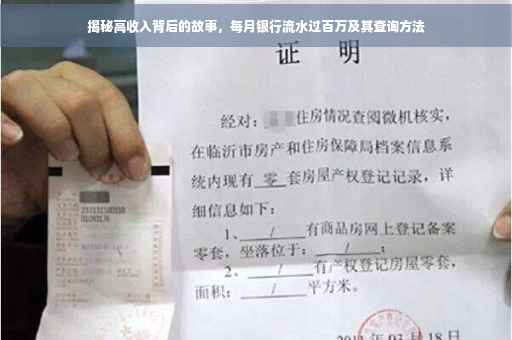 揭秘高收入背后的故事，每月银行流水过百万及其查询方法
证 明
经对：住房情况查阅微机核实，
在临沂市房产和住房保障局档案信息系
统内现有 零 套房屋产权登记记录，详
细信息如下：
1、 / 有商品房网上登记备案
零套，坐落位于： / ；
2、 / 有产权登记房屋零套，
面积： / 平方米。
月 18 日